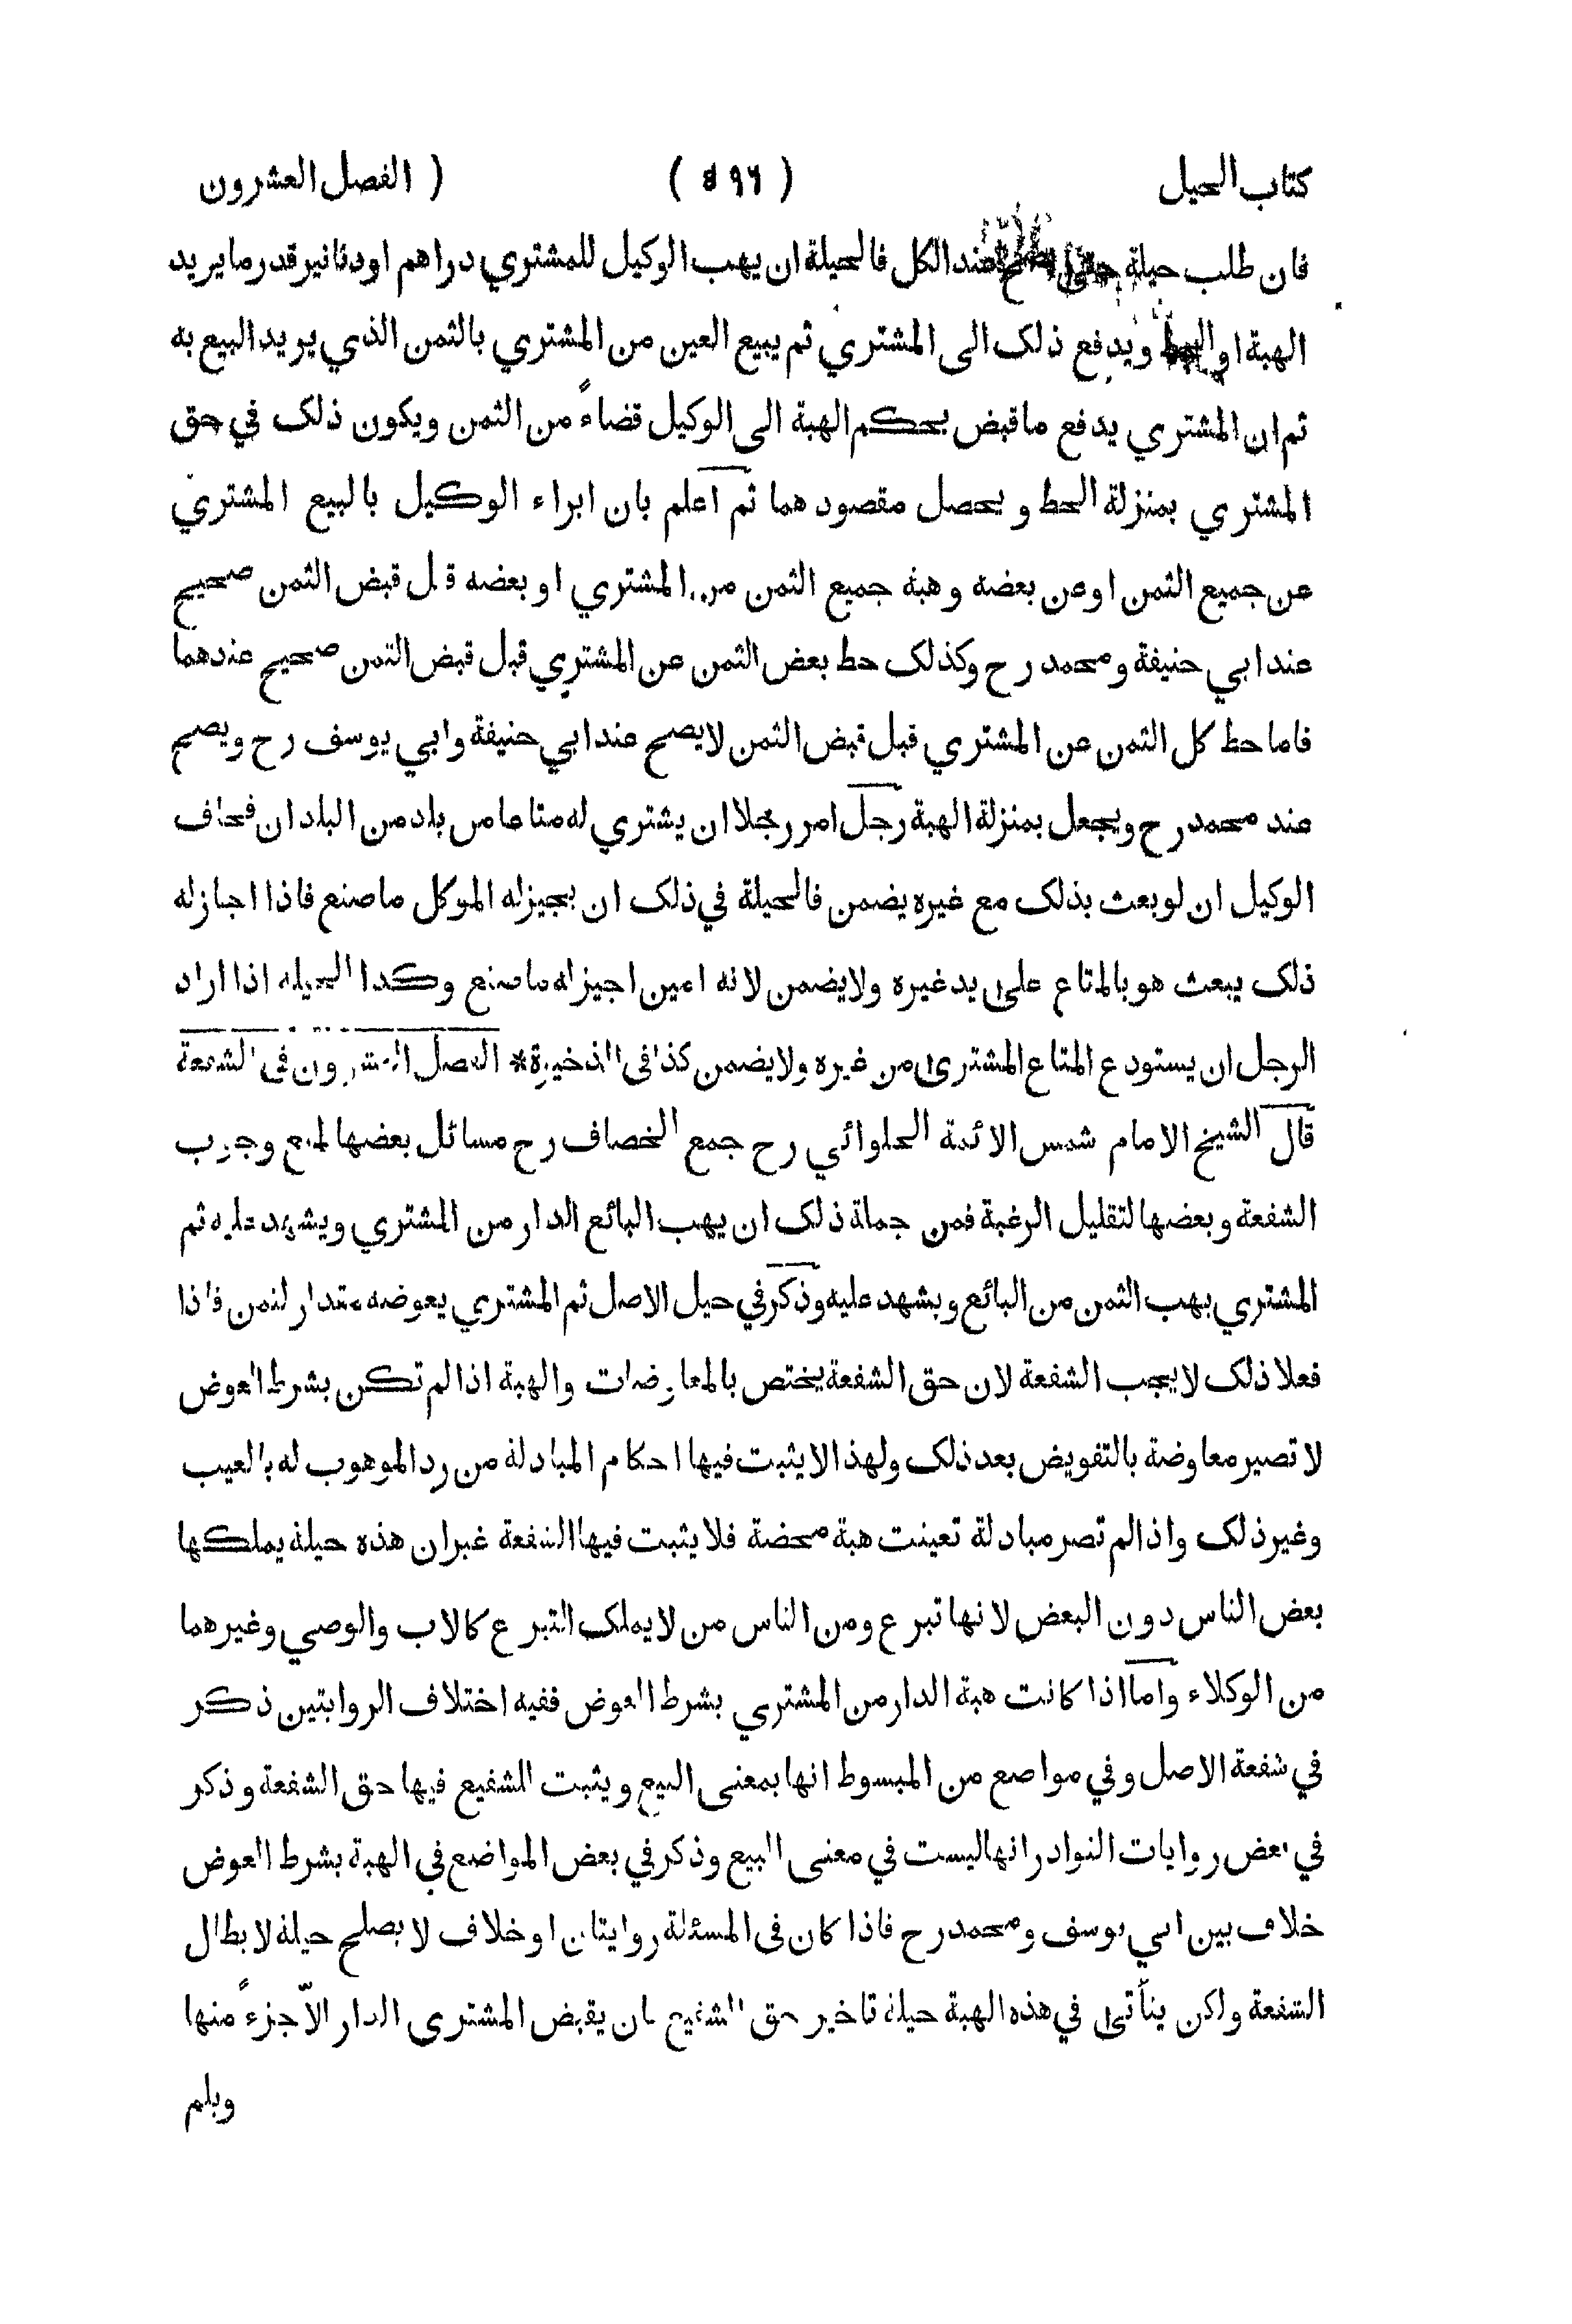 كتاب الحيل ( ٥٩٦ ) ( الفصل العشرون
فان طلب حيلة حتى يصح عند الكل فالحيلة ان يهب الوكيل للمشتري دراهم او دنانير قدر ما يريد
الهبة او الحط ويدفع ذلك الى المشتري ثم يبيع العين من المشتري بالثمن الذي يريد البيع به
ثم ان المشتري يدفع ما قبض بحكم الهبة الى الوكيل قضاءً من الثمن ويكون ذلك في حق
المشتري بمنزلة الحط و يحصل مقصود هما ثم اعلم بان ابراء الوكيل بالبيع المشتري
عن جميع الثمن او عن بعضه و هبة جميع الثمن من المشتري او بعضه قبل قبض الثمن صحيح
عند ابي حنيفة و محمد رح وكذلك حط بعض الثمن عن المشتري قبل قبض الثمن صحيح عندهما
فاما حط كل الثمن عن المشتري قبل قبض الثمن لا يصح عند ابي حنيفة وابي يوسف رح ويصح
عند محمد رح ويجعل بمنزلة الهبة رجل امر رجلا ان يشتري له متاعا من بلد من البلدان فخاف
الوكيل ان لو بعث بذلك مع غيره يضمن فالحيلة في ذلك ان يجيز له الموكل ما صنع فاذا اجاز له
ذلك يبعث هو بالمتاع على يد غيره ولا يضمن لانه امين اجيز له ما صنع وكذا الحيلة اذا اراد
الرجل ان يستودع المتاع المشترى من غيره ولا يضمن كذا في الذخيرة* الفصل العشرون في الشفعة
قال الشيخ الامام شمس الائمة الحلوائي رح جمع الخصاف رح مسائل بعضها لمنع وجوب
الشفعة و بعضها لتقليل الرغبة فمن جملة ذلك ان يهب البائع الدار من المشتري ويشهد عليه ثم
المشتري يهب الثمن من البائع و يشهد عليه وذكر في حيل الاصل ثم المشتري يعوضه مقدار الثمن فاذا
فعلا ذلك لا يجب الشفعة لان حق الشفعة يختص بالمعاوضات والهبة اذا لم تكن بشرط العوض
لا تصير معاوضة بالتفويض بعد ذلك ولهذا لا يثبت فيها احكام المبادلة من رد الموهوب له بالعيب
وغير ذلك واذا لم تصر مبادلة تعينت هبة محضة فلا يثبت فيها الشفعة غير ان هذه حيلة يملكها
بعض الناس دون البعض لانها تبرع ومن الناس من لا يملك التبرع كالاب والوصي وغيرهما
من الوكلاء واما اذا كانت هبة الدار من المشتري بشرط العوض ففيه اختلاف الروايتين ذكر
في شفعة الاصل و في مواضع من المبسوط انها بمعنى البيع و يثبت للشفيع فيها حق الشفعة و ذكر
في بعض روايات النوادر انها ليست في معنى البيع وذكر في بعض المواضع في الهبة بشرط العوض
خلاف بين ابي يوسف و محمد رح فاذا كان في المسئلة روايتان او خلاف لا يصلح حيلة لابطال
الشفعة ولكن يتأتى في هذه الهبة حيلة تاخير حق الشفيع بان يقبض المشترى الدار الاّ جزءً منها